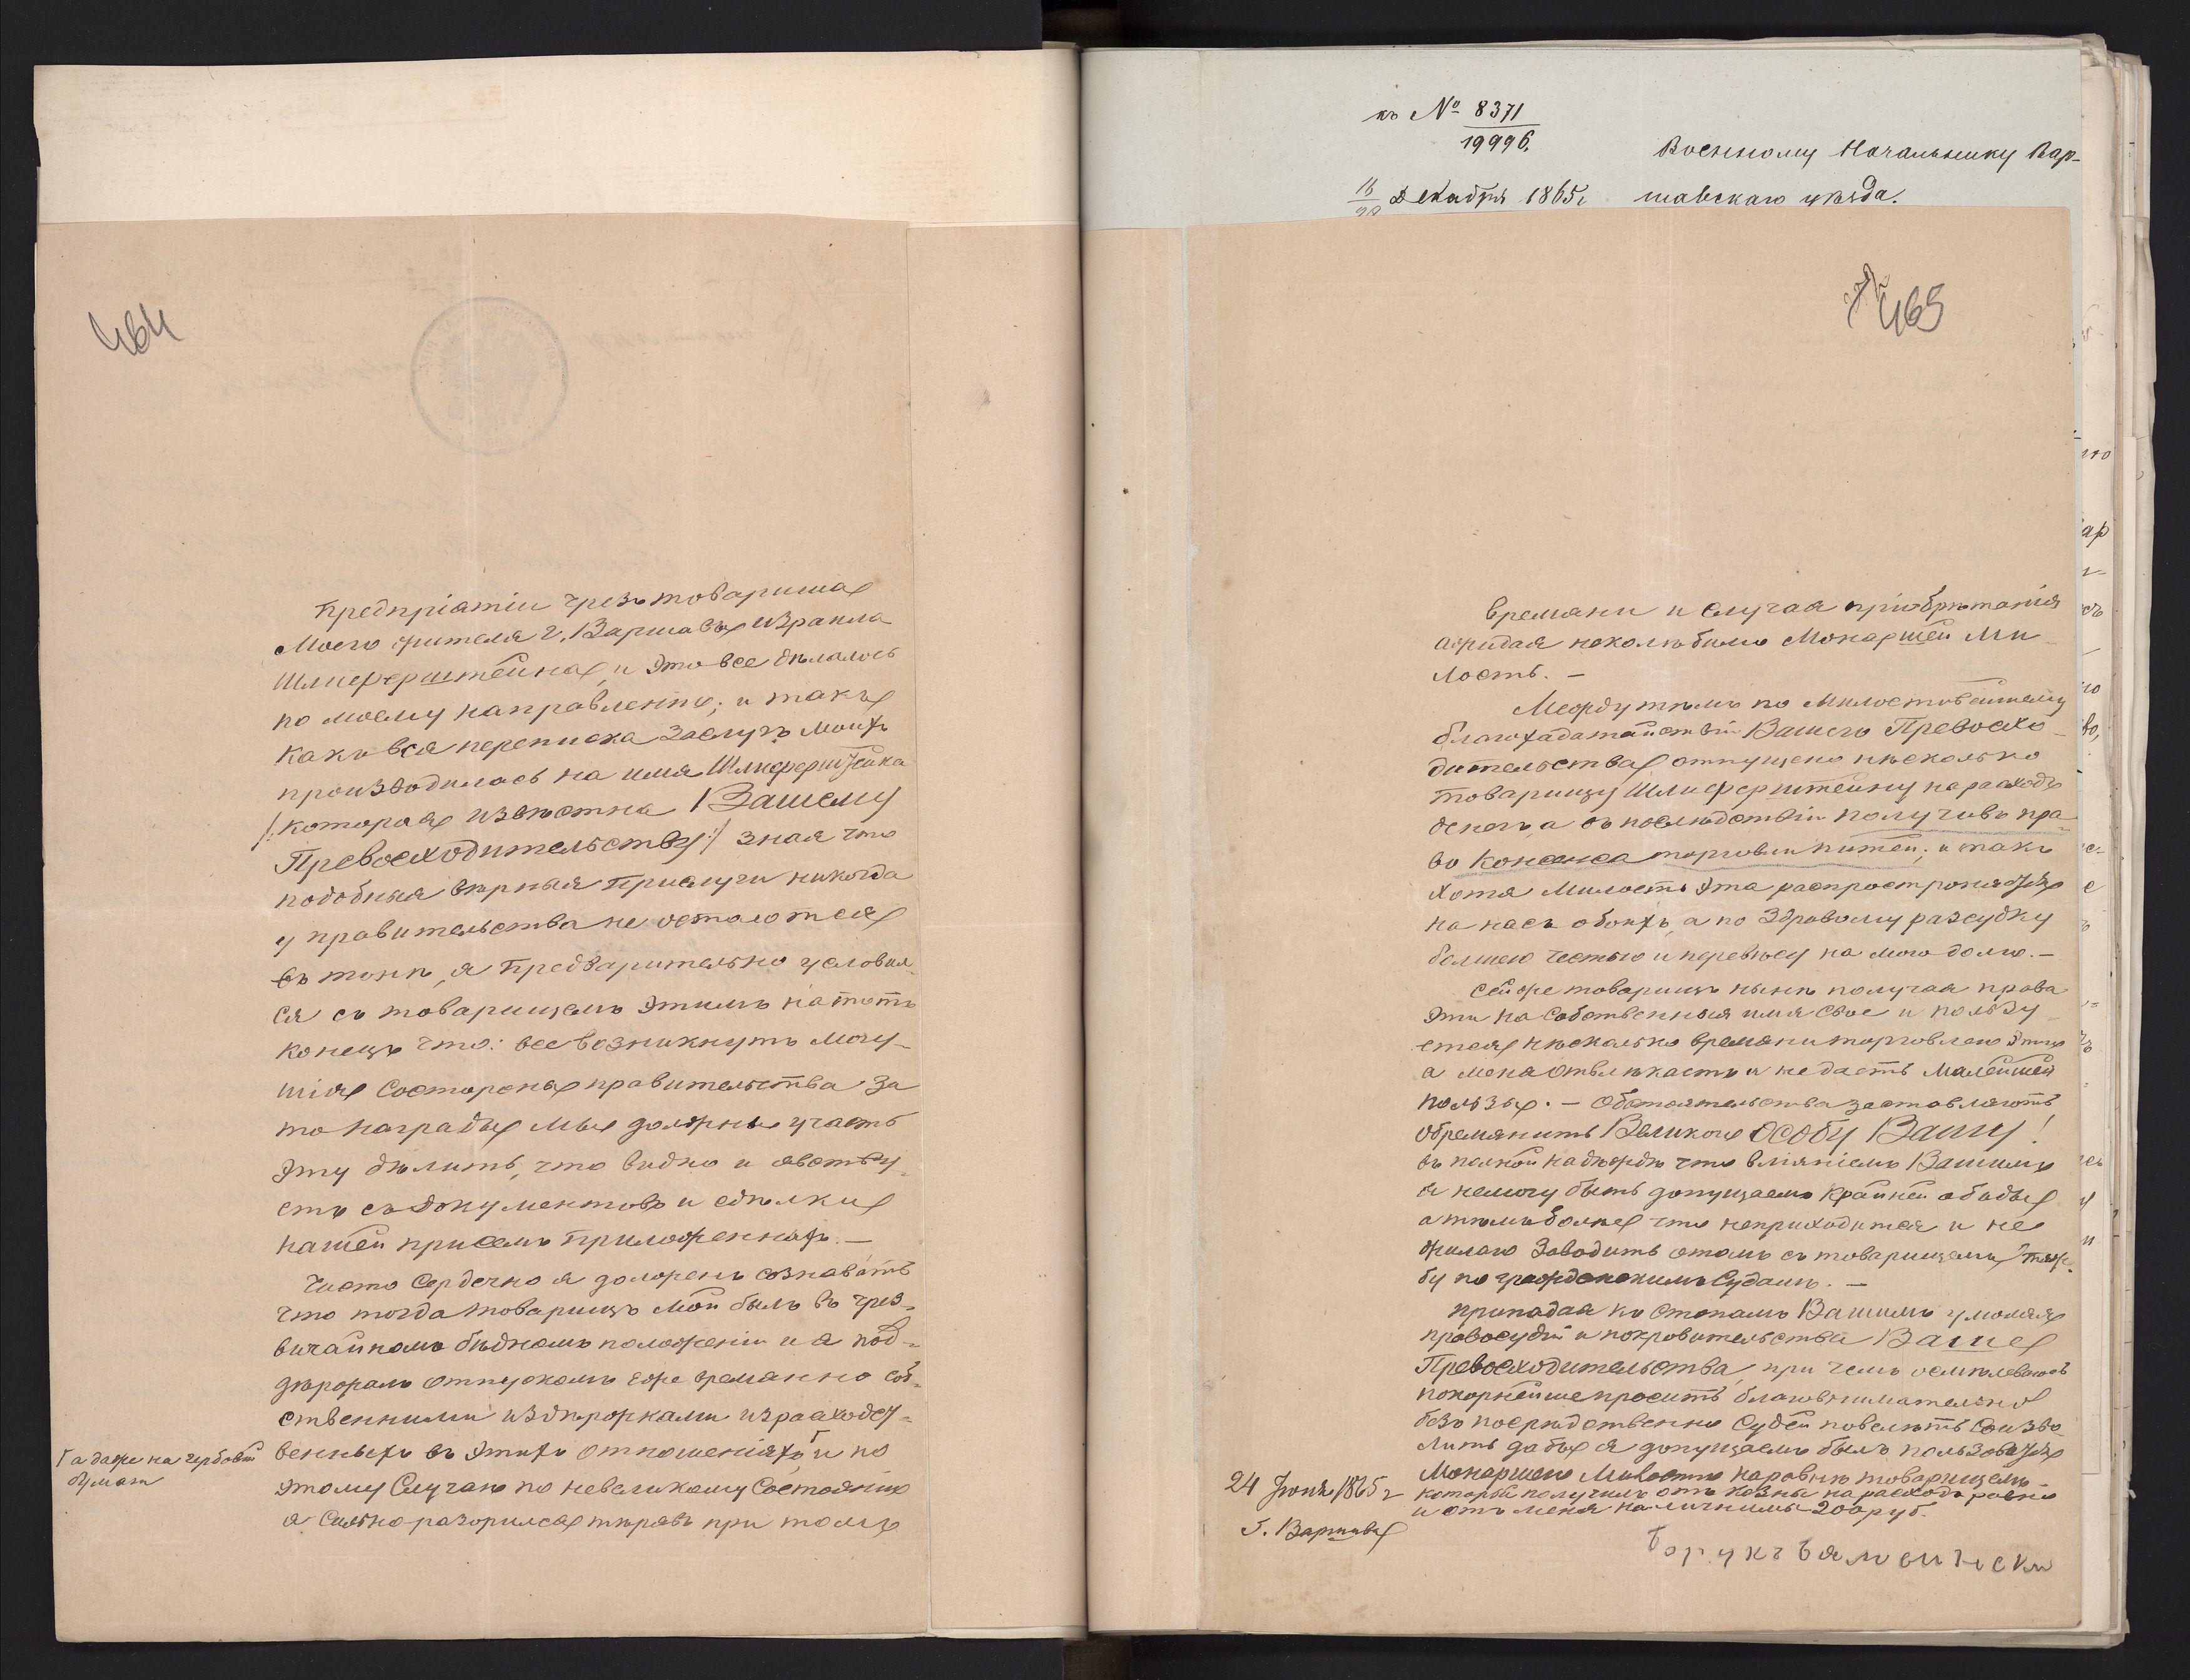 464
предпріятіи чрезъ товарища
моего жителя г. Варшавы Израила
Шлиферштейна, и это все дѣлалось
по моему направленію; и такъ
какъ вся переписка заслугъ моихъ
производилась на имя Шлиферштейна
/: которая извѣстна Вашему
Превосходительству :/ зная что
подобныя вѣрныя прислуги никогда
у правительства не остаются
въ тони, я предварительно условил
ся съ товарищемъ этимъ на тотъ
конецъ что: все возникнуть могу-
щія состороны правительства за
то награды мы должны участь
эту дѣлить, что видно и явству-
етъ съ документовъ и сдѣлки
нашей присемъ приложенныхъ. —
Чисто сердечно я долженъ сознавать
что тогда товарищъ мой былъ въ чрез-
вичайномъ бѣдномъ положеніи и я под-
держалъ отпускомъ еже времянно соб-
ственними издержками израсходу-
венныхъ въ этихъ отношеніяхъ Г и по
Г а даже на гербовой
бумаги
этому случаю по невеликому состоянію
я сильно разорился теравъ при томъ
къ № 8371
19996.
Военному Начальнику Вар-
16
28 Декабря 1865 г.
шавскаго уѣзда.
465
времяни и случая пріобрѣтанія
ажидая неколѣбимо Монаршей Ми-
лость. —
Между тѣмъ по милостивѣйшему
благохадатайствіи Вашего Превосхо-
дительства отпущено нѣсколько
товарищу Шлиферштейну на расходъ
денегъ, а въ послѣдствіи получивъ пра-
во консенса торговли питей; и такъ
хотя милость эта распространяется
на насъ обоихъ, а по здравому разсудку
болшею честью и перевѣсу на мою долю. —
Сейже товарищъ нынѣ получая права
эти на собственныя имя свое и пользу
ется нѣсколько времяни торговлею этою
а меня отвлѣкаетъ и недаетъ малейшей
пользы. — Обстоятельства заставляютъ
обремянить Великою ОСОБУ Вашу!
въ полной надѣждѣ что вліяніемъ Вашимъ
я немогу быть допущаемъ крайней абиды
а тѣмъ болѣе что неприходится и не
жилаю заводить отомъ съ товарищемъ тяж-
бу по гражданскимъ Судамъ. —
Припадая къ стопамъ Вашимъ умоляя
провосудій и покровительства Ваше
Превосходительства, при чемъ осмѣлеваюсь
покорнѣйше просить благовнимательно
безъ посрѣдственно Судей повелѣть соизво
лить дабы я допущаемъ былъ пользоватся
Монаршею Милостью наравнѣ товарищемъ
который получилъ отъ казны на расходъ ровно
и отъ меня наличными 200 руб.
24 Іюня 1865 г
Г. Варшава
Борукъ